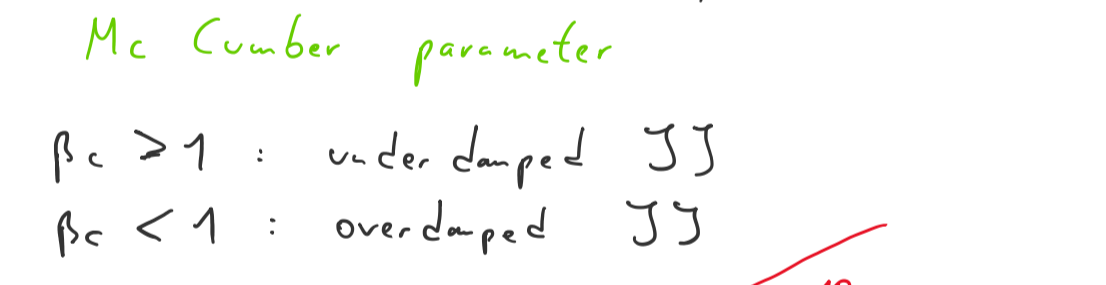 Mc Cumber parameter
βc > 1 : underdamped JJ
βc < 1 : overdamped JJ